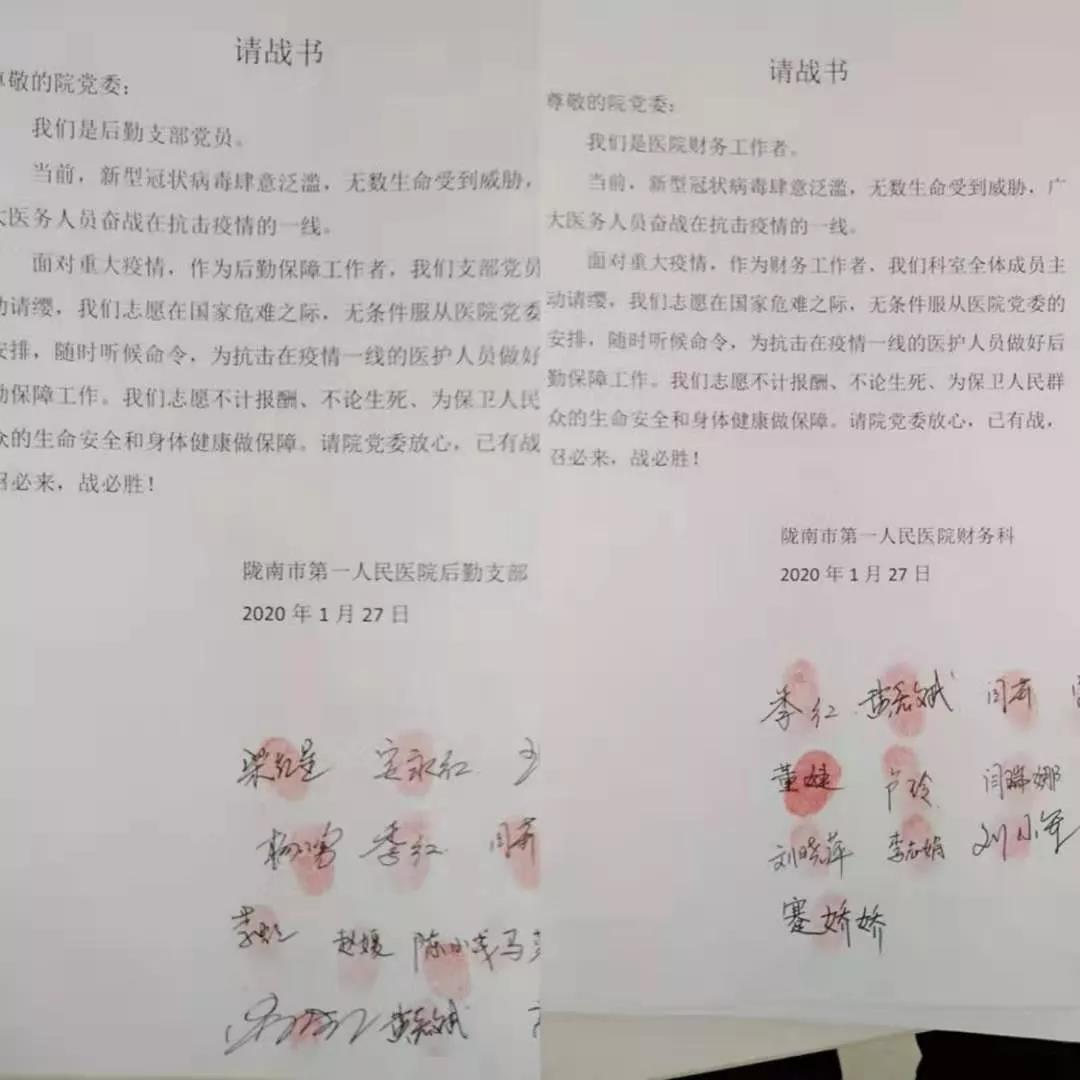 请战书
尊敬的院党委：
我们是后勤支部党员。
当前，新型冠状病毒肆意泛滥，无数生命受到威胁，
大医务人员奋战在抗击疫情的一线。
面对重大疫情，作为后勤保障工作者，我们支部党员
动请缨，我们志愿在国家危难之际，无条件服从医院党委
安排，随时听候命令，为抗击在疫情一线的医护人员做好
勤保障工作。我们志愿不计报酬、不论生死、为保卫人民
众的生命安全和身体健康做保障。请院党委放心，已有战
召必来，战必胜！
陇南市第一人民医院后勤支部
2020 年 1 月 27 日
李红 闫莉
赵媛 陈小戎 马
请战书
尊敬的院党委：
我们是医院财务工作者。
当前，新型冠状病毒肆意泛滥，无数生命受到威胁，广
大医务人员奋战在抗击疫情的一线。
面对重大疫情，作为财务工作者，我们科室全体成员主
动请缨，我们志愿在国家危难之际，无条件服从医院党委的
安排，随时听候命令，为抗击在疫情一线的医护人员做好后
勤保障工作。我们志愿不计报酬、不论生死、为保卫人民群
众的生命安全和身体健康做保障。请院党委放心，已有战，
召必来，战必胜！
陇南市第一人民医院财务科
2020 年 1 月 27 日
李红 闫莉
董婕 卢玲 闫瑞娜
刘晓萍 李志娟 刘小军
蹇娇娇